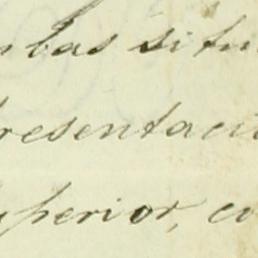 bas situ
resentaci
uperior, co